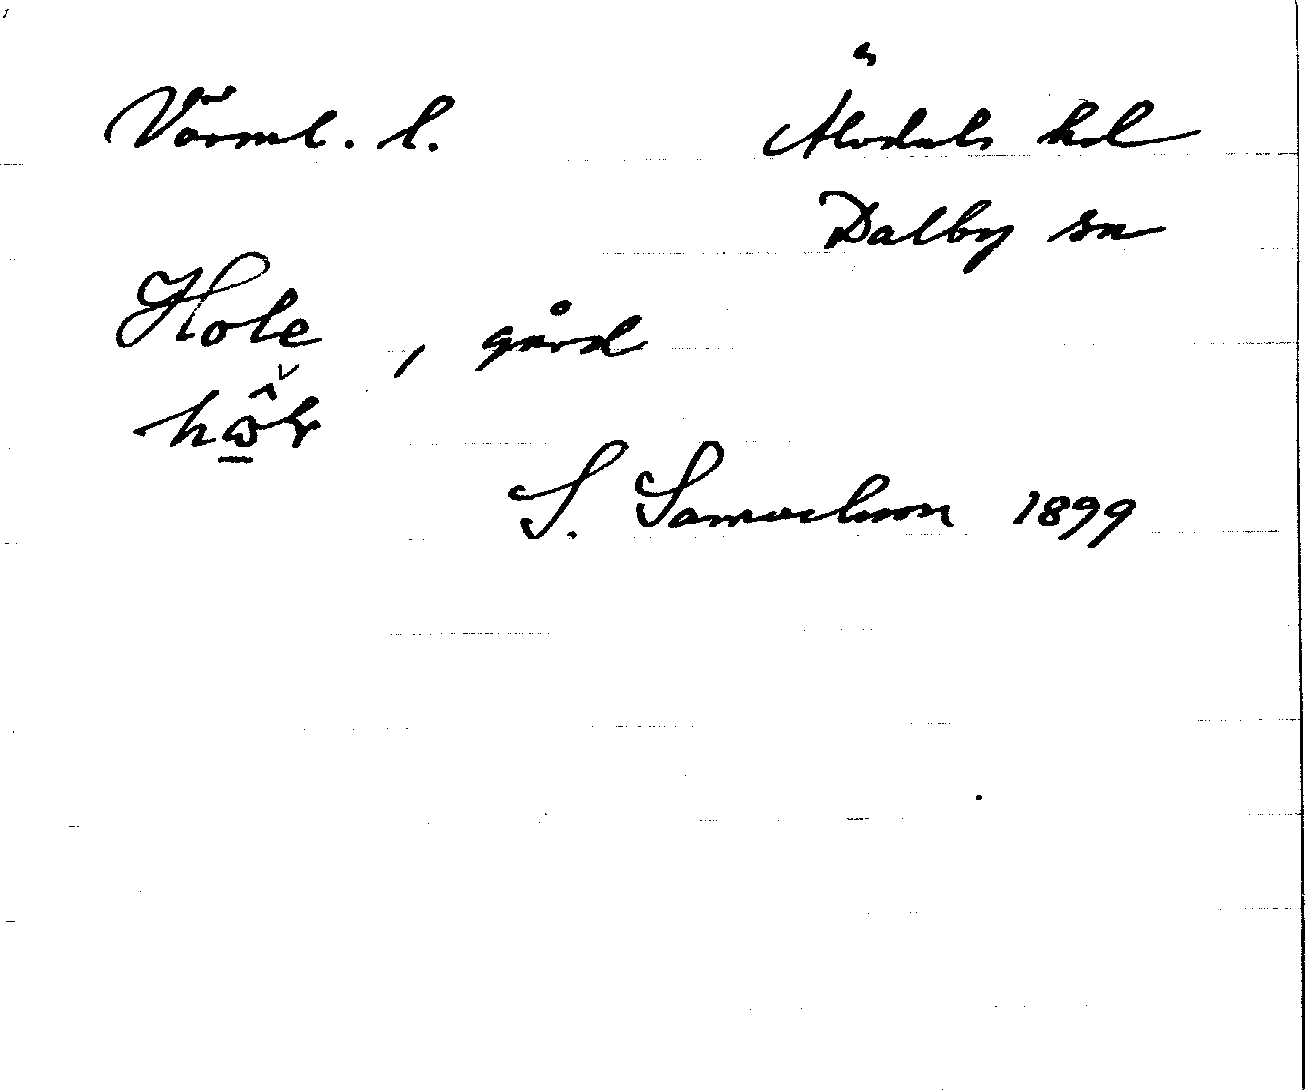 Värml. l. Älvdals hd
Dalby sn
Hole, gård
S. Samuelsson 1899